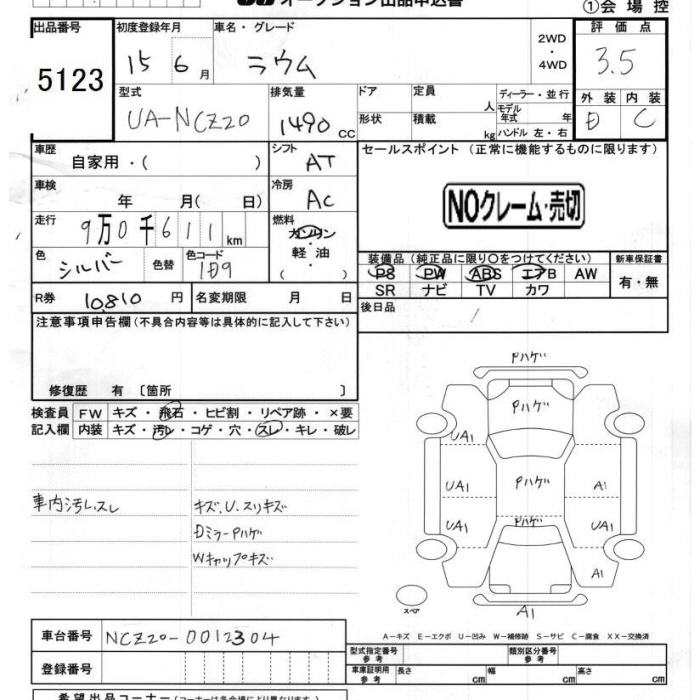 オークション出品申込書
①会場控
出品番号 5123
初度登録年月 15 6月
車名・グレード ラウム
2WD・4WD
評価点 3.5
外装 D 内装 C
型式 UA-NCZ20
排気量 1490 cc
ドア 形状
定員 人
積載 kg
ディーラー・並行
モデル年式 年
ハンドル 左・右
車歴 自家用・( )
シフト AT
セールスポイント (正常に機能するものに限ります)
NOクレーム・売切
車検 年 月( 日)
冷房 AC
走行 9万0千611 km
燃料 ガソリン・軽油・( )
色 シルバー 色替 色コード 1D9
装備品 (純正品に限り○をつけてください)
PS PW ABS エアB AW
SR ナビ TV カワ
新車保証書 有・無
R券 10,810 円 名変期限 月 日
後日品 /
注意事項申告欄 (不具合内容等は具体的に記入して下さい)
修復歴 有 〔箇所 〕
検査員記入欄
FW キズ・飛石・ヒビ割・リペア跡・×要
内装 キズ・汚レ・コゲ・穴・スレ・キレ・破レ
車内汚レ、スレ
キズ.U.スリキズ
DミラーPハゲ
Wキャップキズ
Pハゲ
Pハゲ
UA1
UA1 Pハゲ A1
UA1 Pハゲ UA1
A1
スペア
A1
A−キズ E−エクボ U−凹み W−補修跡 S−サビ C−腐食 XX−交換済
車台番号 NCZ20-0012304
登録番号
型式指定番号 参考
類別区分番号 参考
車庫証明用 参考 長さ cm 幅 cm 高さ cm
希望出品コーナー (コーナーは各会場により異なります)